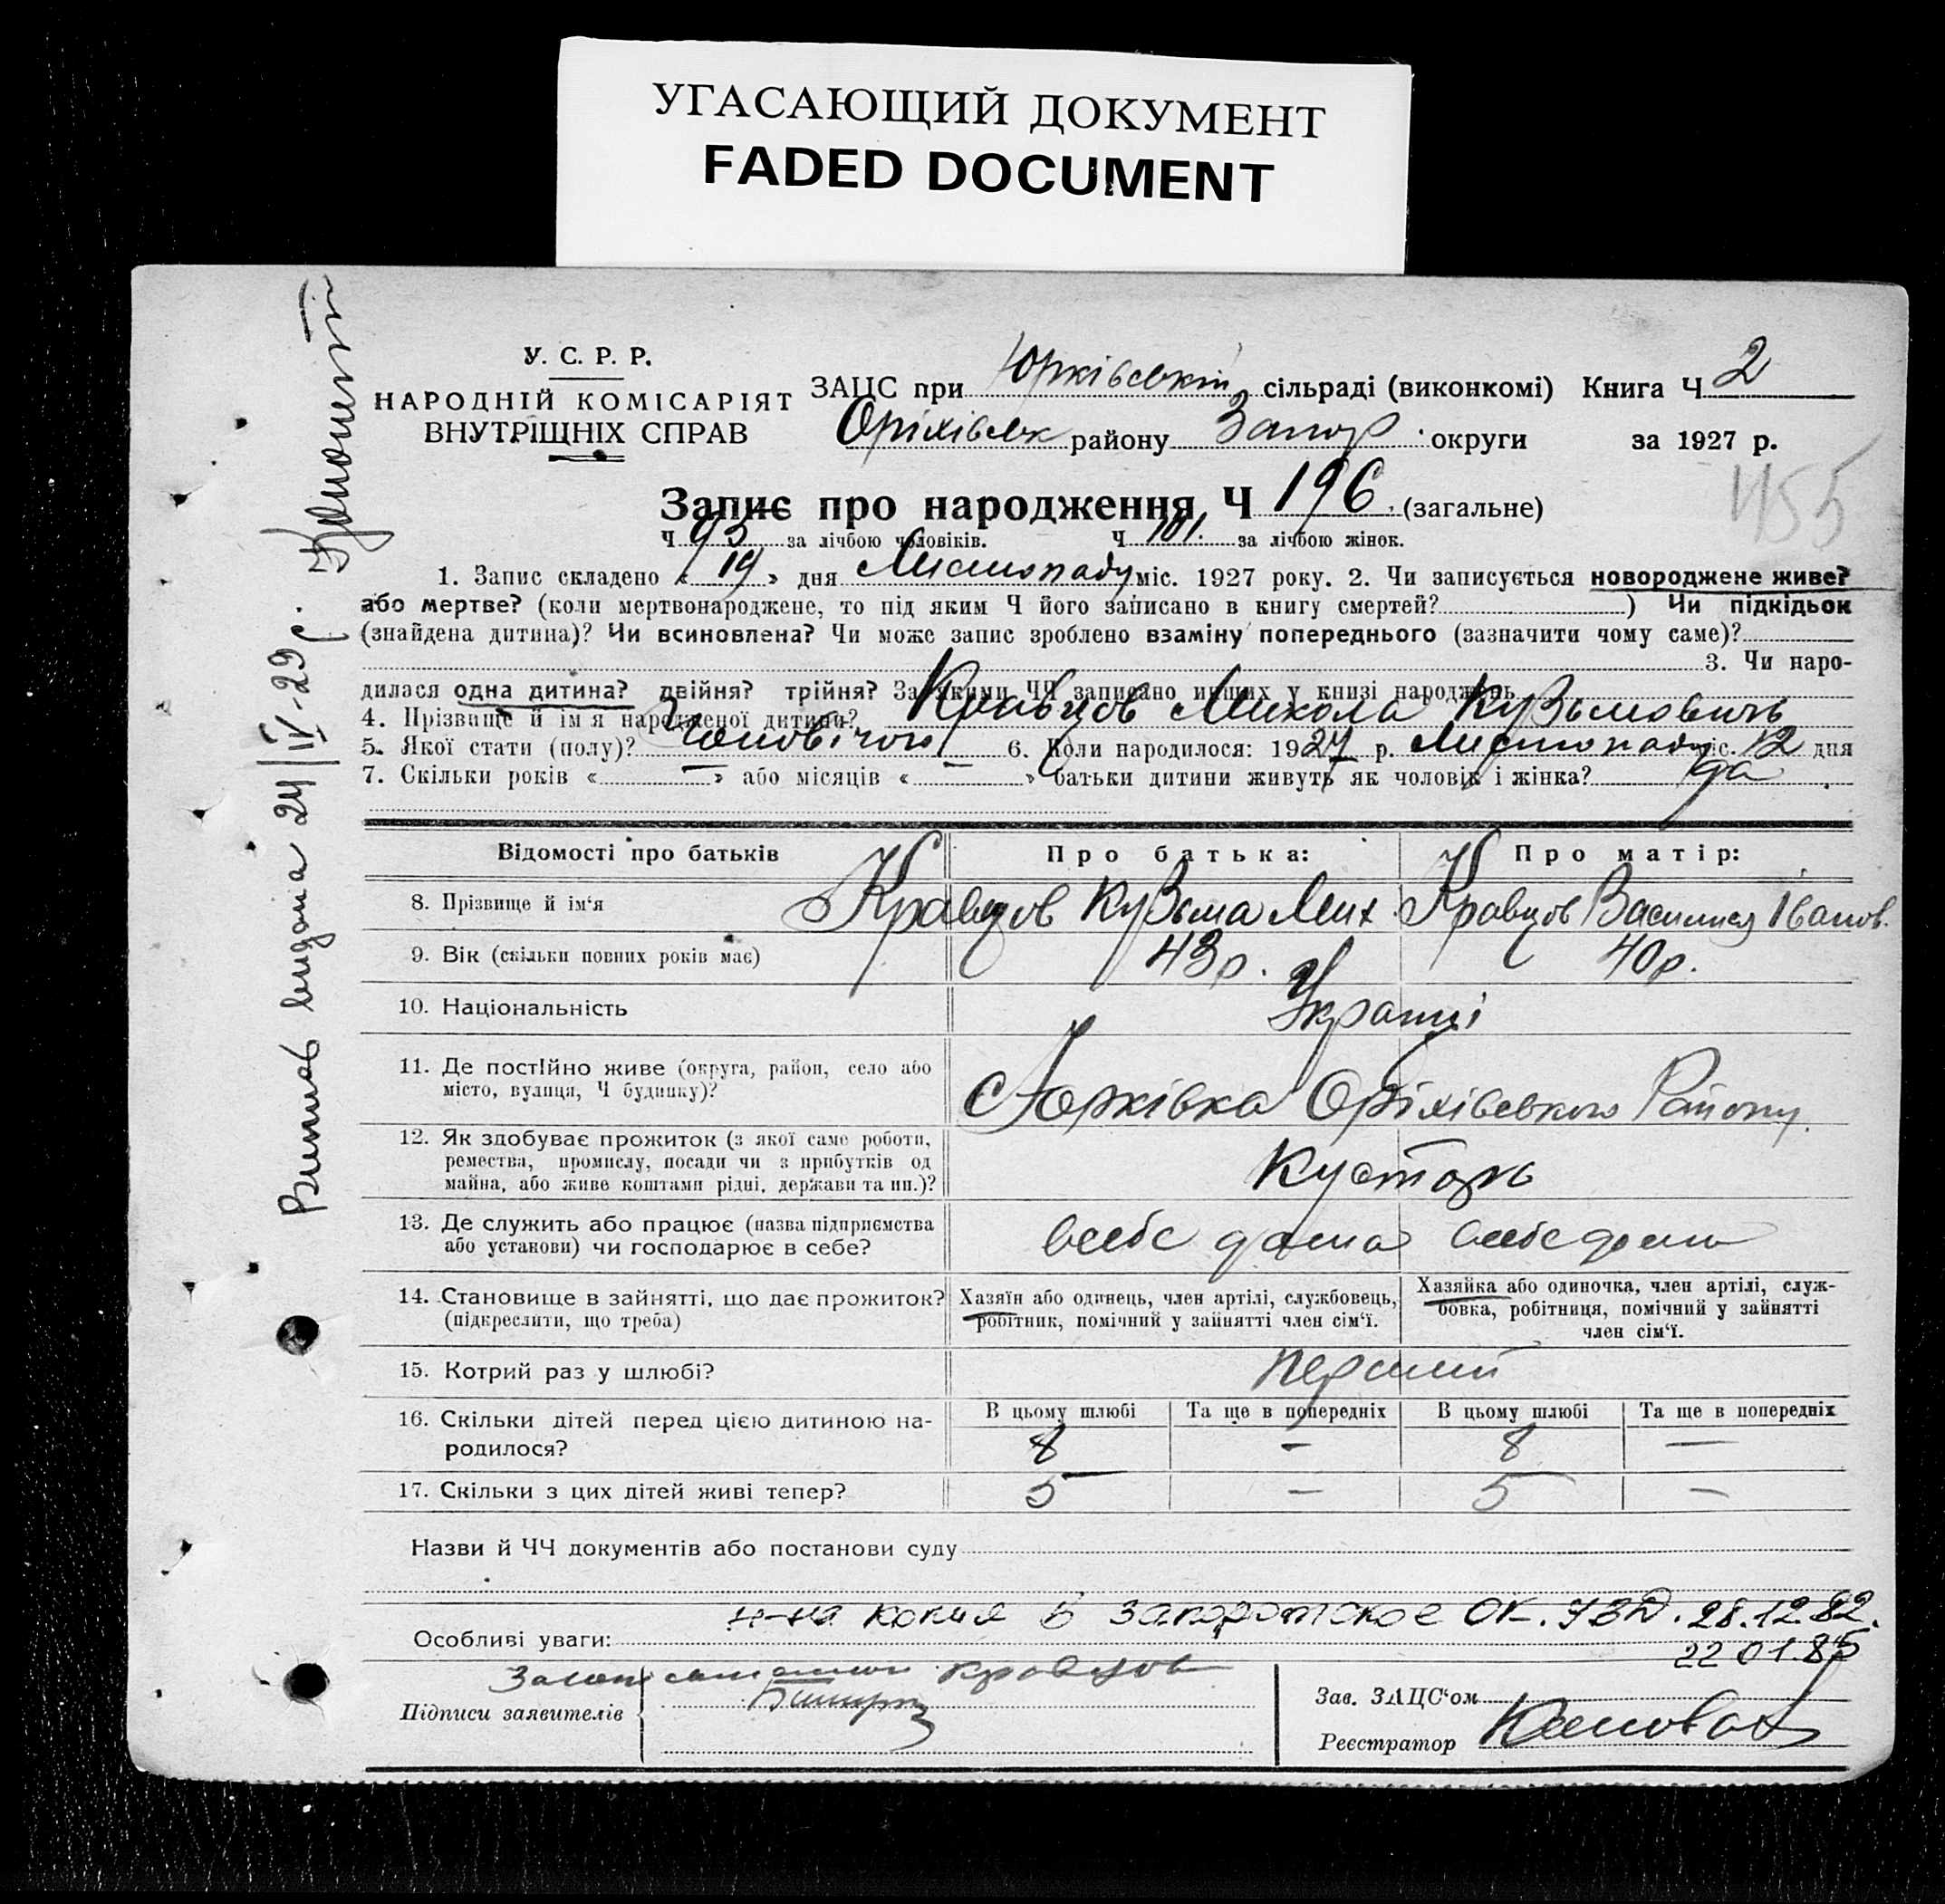 УГАСАЮЩИЙ ДОКУМЕНТ
FADED DOCUMENT
У. С. Р. Р.
НАРОДНІЙ КОМІСАРІЯТ
ВНУТРІШНІХ СПРАВ
ЗАЦС при Юрківській сільраді (виконкомі) Книга Ч 2
Оріхівськ району Запор. округи за 1927 р.
455
Запис про народження Ч 196 (загальне)
Ч 95 за лічбою чоловіків. Ч 101. за лічбою жінок.
1. Запис складено « 19 » дня Листопаду міс. 1927 року. 2. Чи записується новороджене живе?
або мертве? (коли мертвонароджене, то під яким Ч його записано в книгу смертей? ) Чи підкідьок
(знайдена дитина)? Чи всиновлена? Чи може запис зроблено взаміну попереднього (зазначити чому саме)?
3. Чи наро-
дилася одна дитина? двійня? трійня? За якими ЧЧ записано инших у книзі народжень
4. Прізвище й ім'я народженої дитини? Кравцов Микола Кузьмовичь
5. Якої стати (полу)? Чоловічої 6. Коли народилося: 1927 р. Листопаду міс. 12 дня
7. Скільки років « — » або місяців « — » батьки дитини живуть як чоловік і жінка? да
Відомості про батьків Про батька: Про матір:
8. Прізвище й ім'я Кравцов Кузьма Мих. Кравцов Василиса Іванов.
9. Вік (скільки повних років має) 43 р. 40 р.
10. Національність Українці
11. Де постійно живе (округа, район, село або
місто, вулиця, Ч будинку)? Юрківка Оріхівського Району.
12. Як здобуває прожиток (з якої саме роботи,
ремества, промислу, посади чи з прибутків од
майна, або живе коштами рідні, держави та ин.)? Кустарь
13. Де служить або працює (назва підприємства
або установи) чи господарює в себе? всебе дома всебе дома
14. Становище в зайнятті, що дає прожиток?
(підкреслити, що треба)
Хазяїн або одинець, член артілі, службовець,
робітник, помічний у зайнятті член сім'ї.
Хазяйка або одиночка, член артілі, служ-
бовка, робітниця, помічний у зайнятті
член сім'ї.
15. Котрий раз у шлюбі? первий
16. Скільки дітей перед цією дитиною на-
родилося?
В цьому шлюбі Та ще в попередніх В цьому шлюбі Та ще в попередніх
8 — 8 —
17. Скільки з цих дітей живі тепер? 5 — 5 —
Назви й ЧЧ документів або постанови суду
н-на копия в запорожское ОК. УВД. 28.12.82.
Особливі уваги:
22 01.85
Кравцов
Підписи заявителів
Зав. ЗАЦС'ом
Реєстратор
Витяг видана 24/IV-29 р.